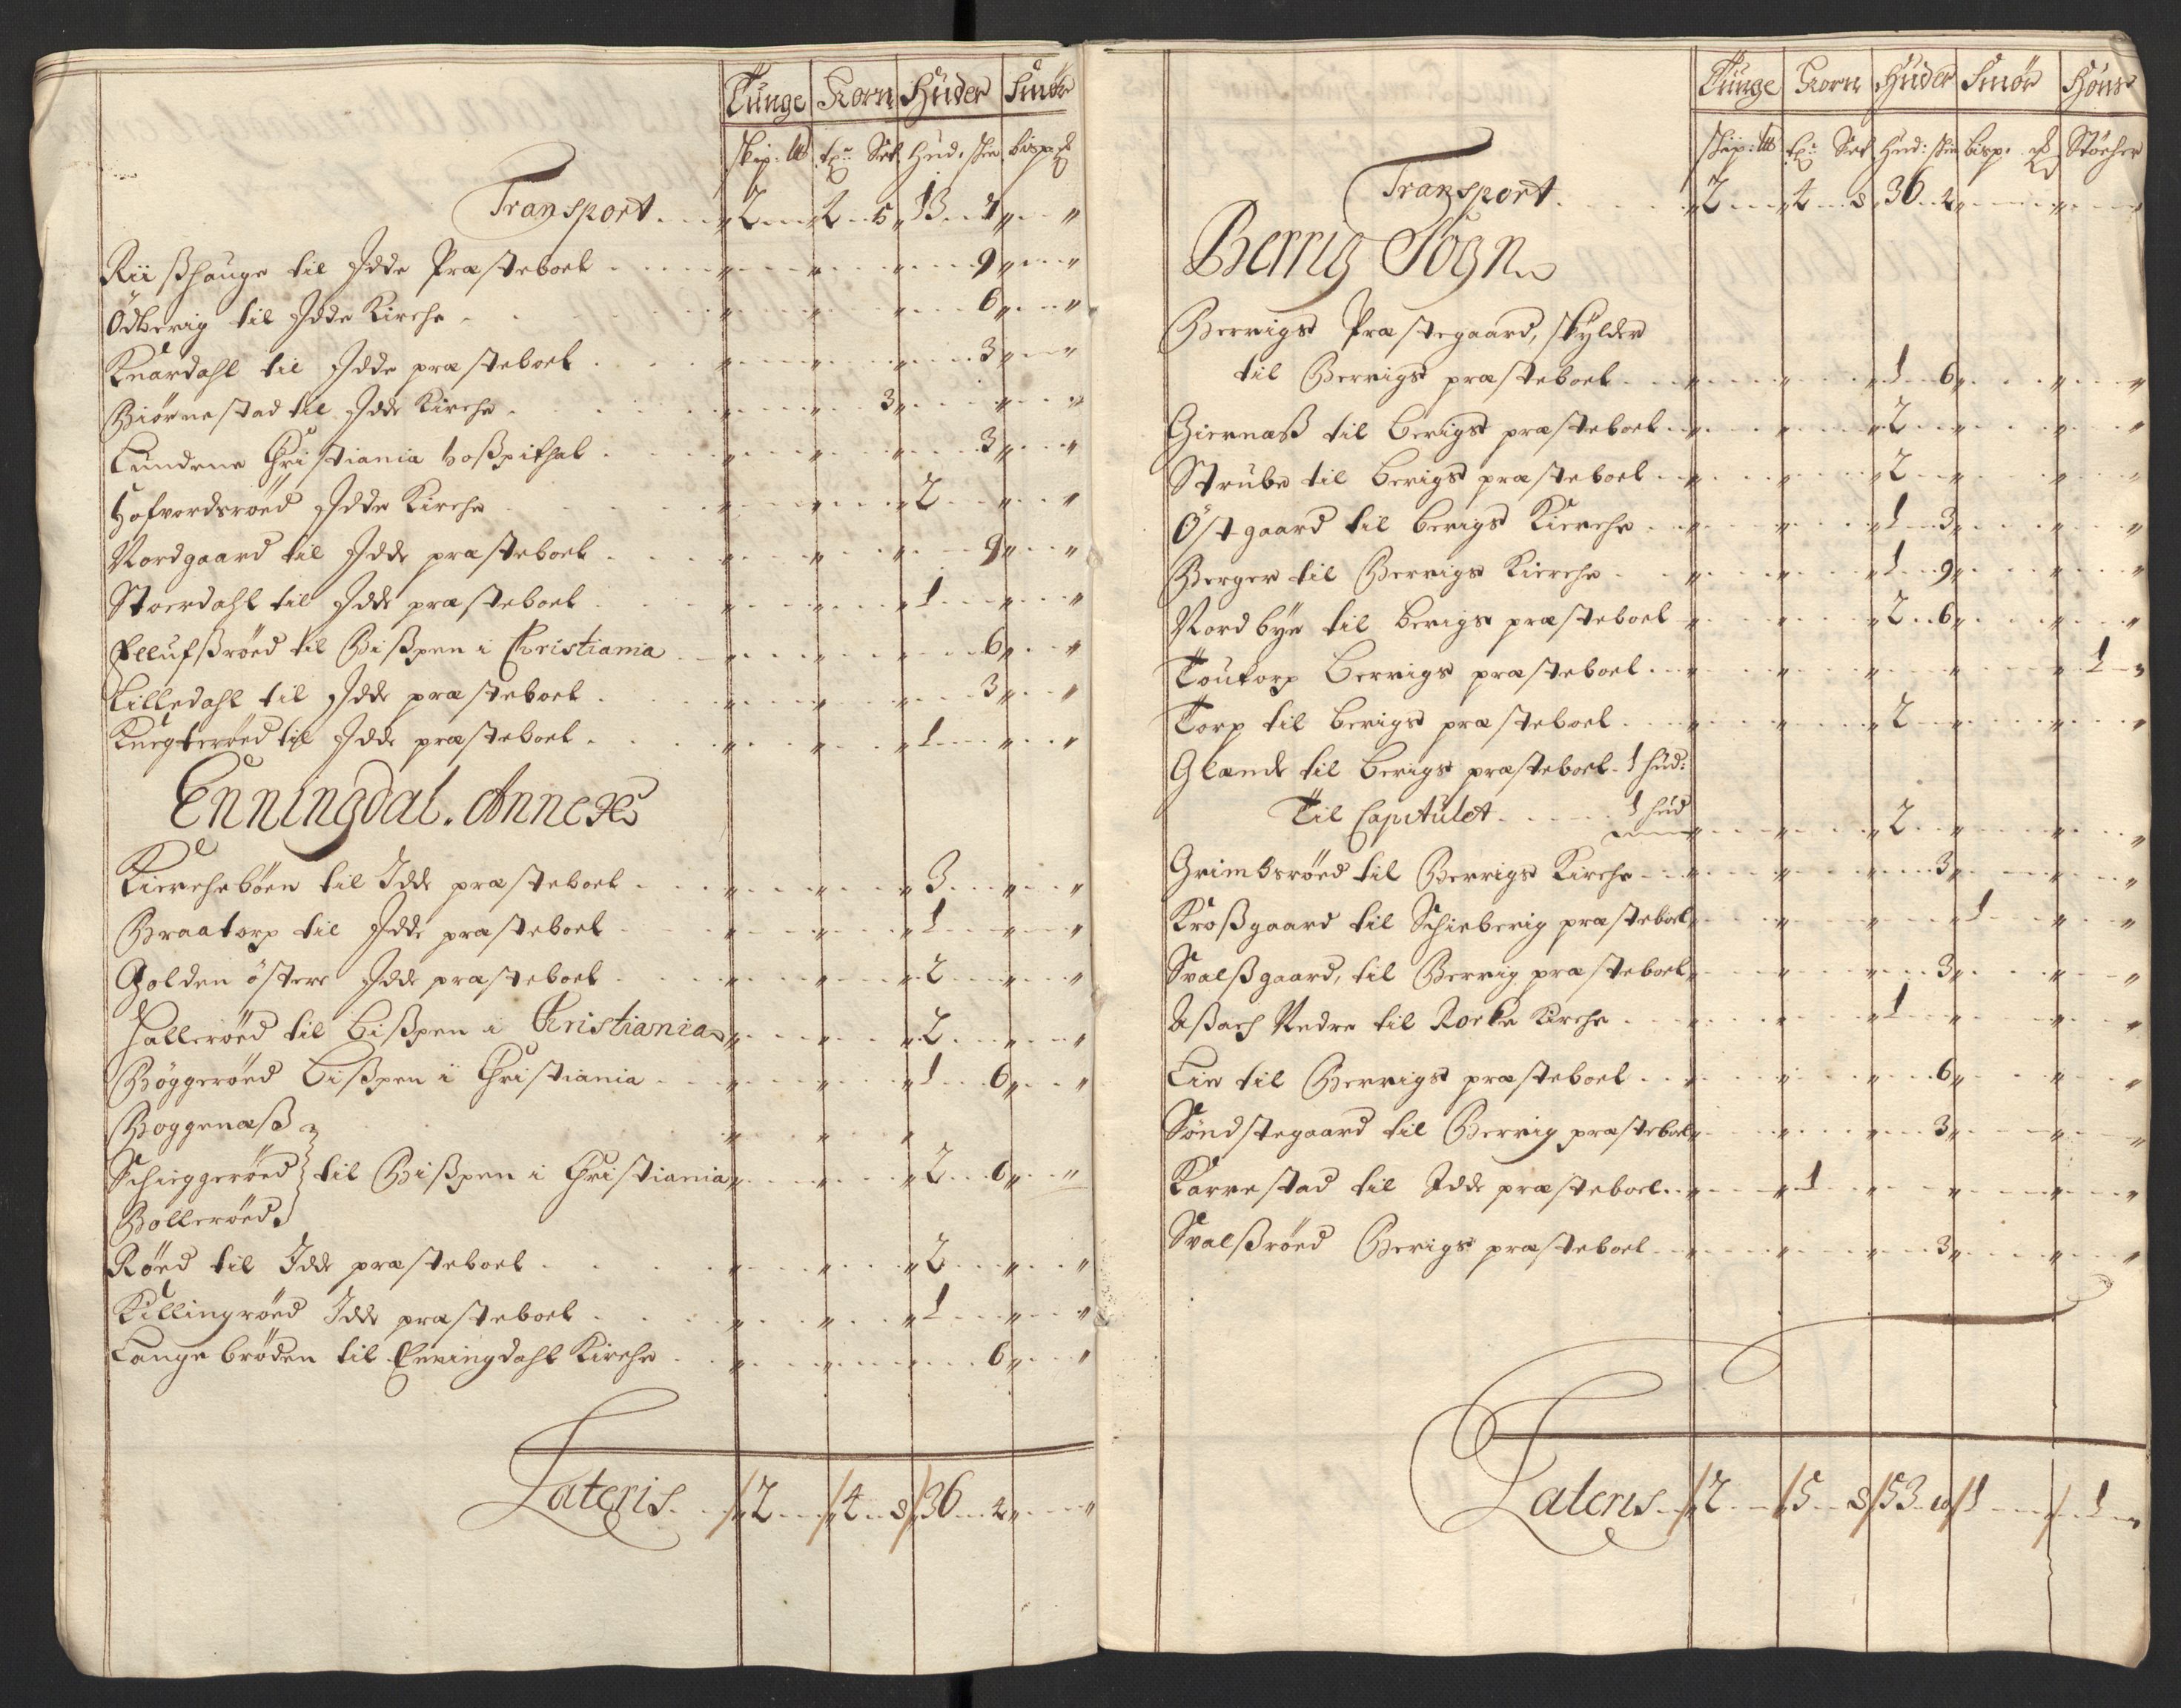 Tunge Korn Huder Smör
skip: tt tr: Set Hud: skin bisp:
Transport 2 2 5 13 7
Riishauge til Idde Præsteboel 9
Ödberig til Idde Kirche 6
Knardahl til Idde præsteboel 3
Biörnestad til Idde Kirche 3
Lundene Christiania hoßpithal 3
Hofvordsröed Idde Kirche 2
Nordgaard til Idde præsteboel 9
Stoerdahl til Idde præsteboel 1
Ellufßröed til Bißpen i Christiania 6
Lilledahl til Idde præsteboel 3
Knegteröed til Idde præsteboel 1
Enningdal. Annex
Kiercheböen til Idde præsteboel 3
Braatorp til Idde præsteboel 1
Holden östere Idde præsteboel 2
Halleröed til Bißpen i Christiania 2
Böggeröed Bißpen i Christiania 1 6
Boggenæß
Schieggeröed til Bißpen i Christiania 2 6
Bolleröed
Röed til Idde præsteboel 2
Killingröed Idde præsteboel 1
Lange bröden til Enningdahl Kirche 6
Lateris 2 4 8 36 4
Tunge Korn Huder Smör Höns
skip: tt tr: Set Hud: skin bisp: Støcher
Transport 2 4 8 36 4
Berrig Sogn
Berrigs Præstegaard, skylder
til Berrigs præsteboel 1 6
Giernæß til Berigs præsteboel 2
Strube til Berigs præsteboel 2
Östgaard til Berigs Kierche 1 3
Berger til Berrigs Kierche 1 9
Nordbÿe til Berigs præsteboel 2 6
Toutorp Berrigs præsteboel 1
Torp til Berigs præsteboel 2
Glænde til Berigs præsteboel 1 hud:
Til Capitulet 1 hud
2
Grimbsröed til Berrigs Kirche 3
Kroßgaard til Schieberig præsteboel 1
Svalßgaard, til Berrig præsteboel 3
Aßach Nedre til Rocke Kirche 1
Lie til Berrigs præsteboel 6
Söndstegaard til Berrig præsteboel 3
Karrestad til Idde præsteboel 1
Svalßröed Berigs præsteboel 3
Lateris 2 5 8 53 10 1 1